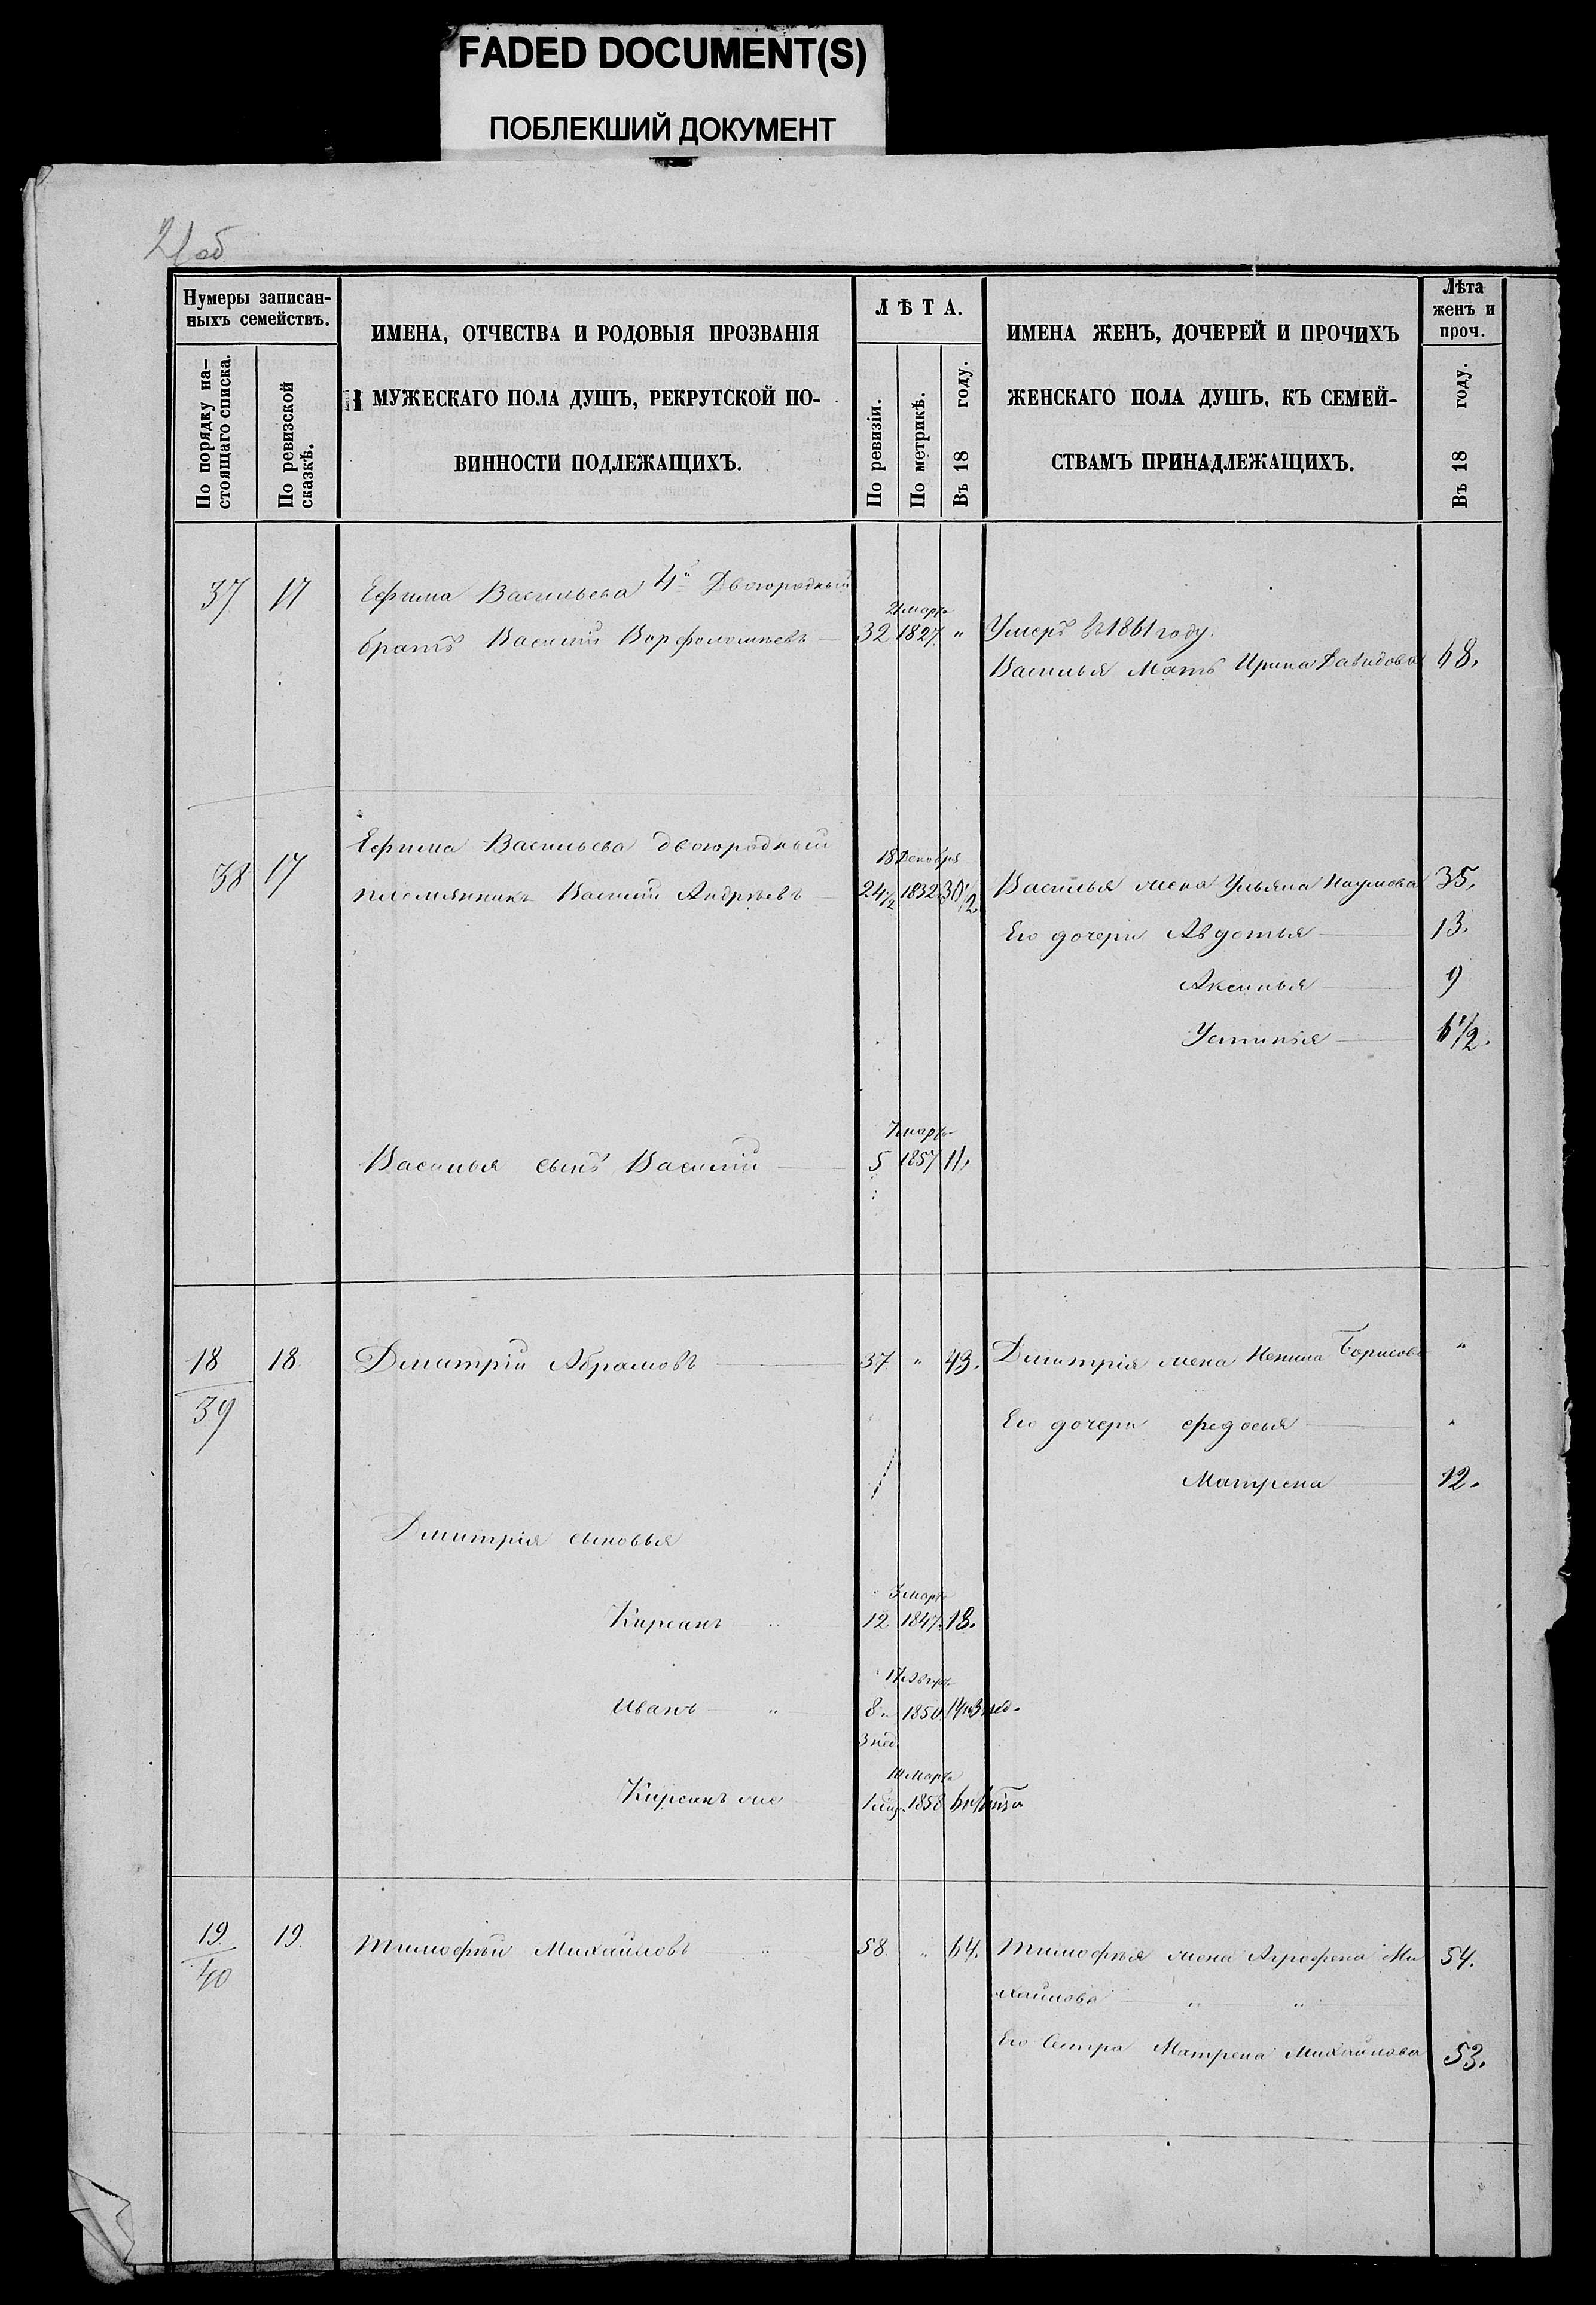 FADED DOCUMENT(S)
ПОБЛЕКШИЙ ДОКУМЕНТ
21 об
Нумеры записан-
ныхъ семействъ.
По порядку на-
стоящаго списка.
По ревизской
сказкѣ.
ИМЕНА, ОТЧЕСТВА И РОДОВЫЯ ПРОЗВАНІЯ
МУЖЕСКАГО ПОЛА ДУШЪ, РЕКРУТСКОЙ ПО-
ВИННОСТИ ПОДЛЕЖАЩИХЪ.
ЛѢТА.
По ревизіи.
По метрикѣ.
Въ 18 году.
ИМЕНА ЖЕНЪ, ДОЧЕРЕЙ И ПРОЧИХЪ
ЖЕНСКАГО ПОЛА ДУШЪ, КЪ СЕМЕЙ-
СТВАМЪ ПРИНАДЛЕЖАЩИХЪ.
Лѣта
женъ и
проч.
Въ 18 году.
37 17 Ефима Васильева 4й Двоюродный
братъ Василій Варфоломѣевъ 32 21 марта 1827 " Умеръ въ 1861 году.
Василья Мать Ирина Давидова 68.
38 17 Ефима Васильева двоюродный
племянникъ Василій Андрѣевъ 24 1/2 18 Декабря 1832 30 1/2 Василья жена Ульяна Наумова 35.
Его дочери Авдотья 13.
Аксинья 9
Устинья 6 1/2.
Василья сынъ Василій 5 7 марта 1857 11.
18 18 Дмитрій Абрамовъ 37 " 43. Дмитрія жена Борисова "
39
Его дочери Ѳедосья "
Матрена 12.
Дмитрія сыновья
Кирсанъ " 12 3 марта 1847 18.
Иванъ " 8 и 3 нед 1850 14 и 3 нед.
Кирсанъ же 10 Марта 1858
19 19 Тимофѣй Михайловъ " 58. " 64. Тимофѣя жена Агрофена Ми
40
хайлова " " 54.
Его Сестра Матрена Михайлова 53.